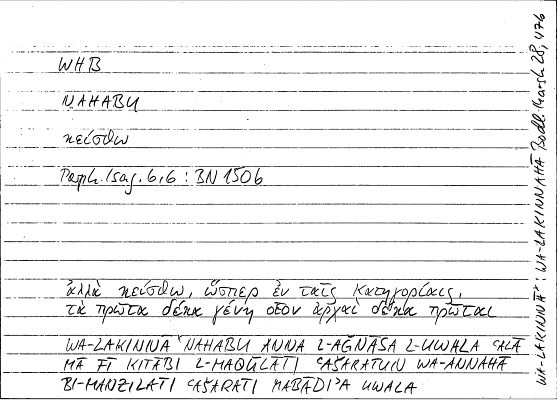 WHB
NAHABU
κείσθω
Porph. Isag. 6,6 : BN 1506
ἀλλὰ κείσθω, ὥσπερ ἐν ταῖς Κατηγορίαις,
τὰ πρῶτα δέκα γένη οἷον ἀρχαὶ δέκα πρῶται
WA-LAKINNĀ NAHABU ANNA L-AǦNĀSA L-UWALA ʿALĀ
MĀ FĪ KITĀBI L-MAQŪLĀTI ʿAŠARATUN WA-ANNAHĀ
BI-MANZILATI ʿAŠARATI MABĀDIʾA UWALA
WA-LAKINNĀ : WA-LAKINNAHĀ Bodl. Marsh 28, 476